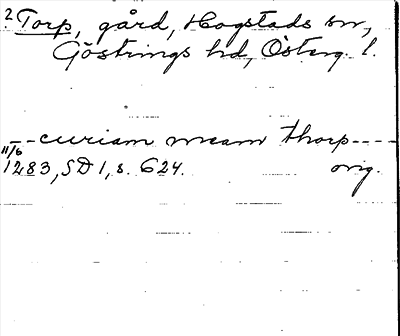 ? Torp, gård, Hogstads sn,
Göstrings hd, Österg. l.
--curiam meam thorp----
11/6
1283, SD 1, s. 624. orig.